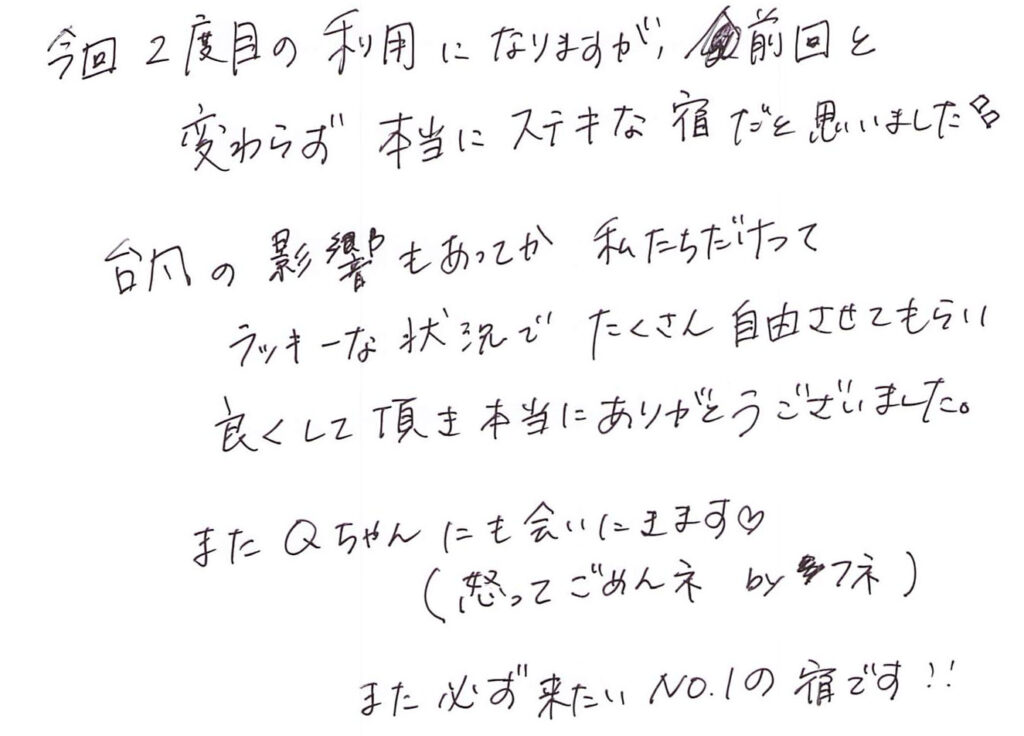 今回2度目の利用になりますが、前回と
変わらず本当にステキな宿だと思いました
台風の影響もあってか 私たちだけって
ラッキーな状況で たくさん自由させてもらい
良くして頂き本当にありがとうございました。
またQちゃんにも会いにきます♡
(怒ってごめんネ by フネ)
また必ず来たいNO.1の宿です!!